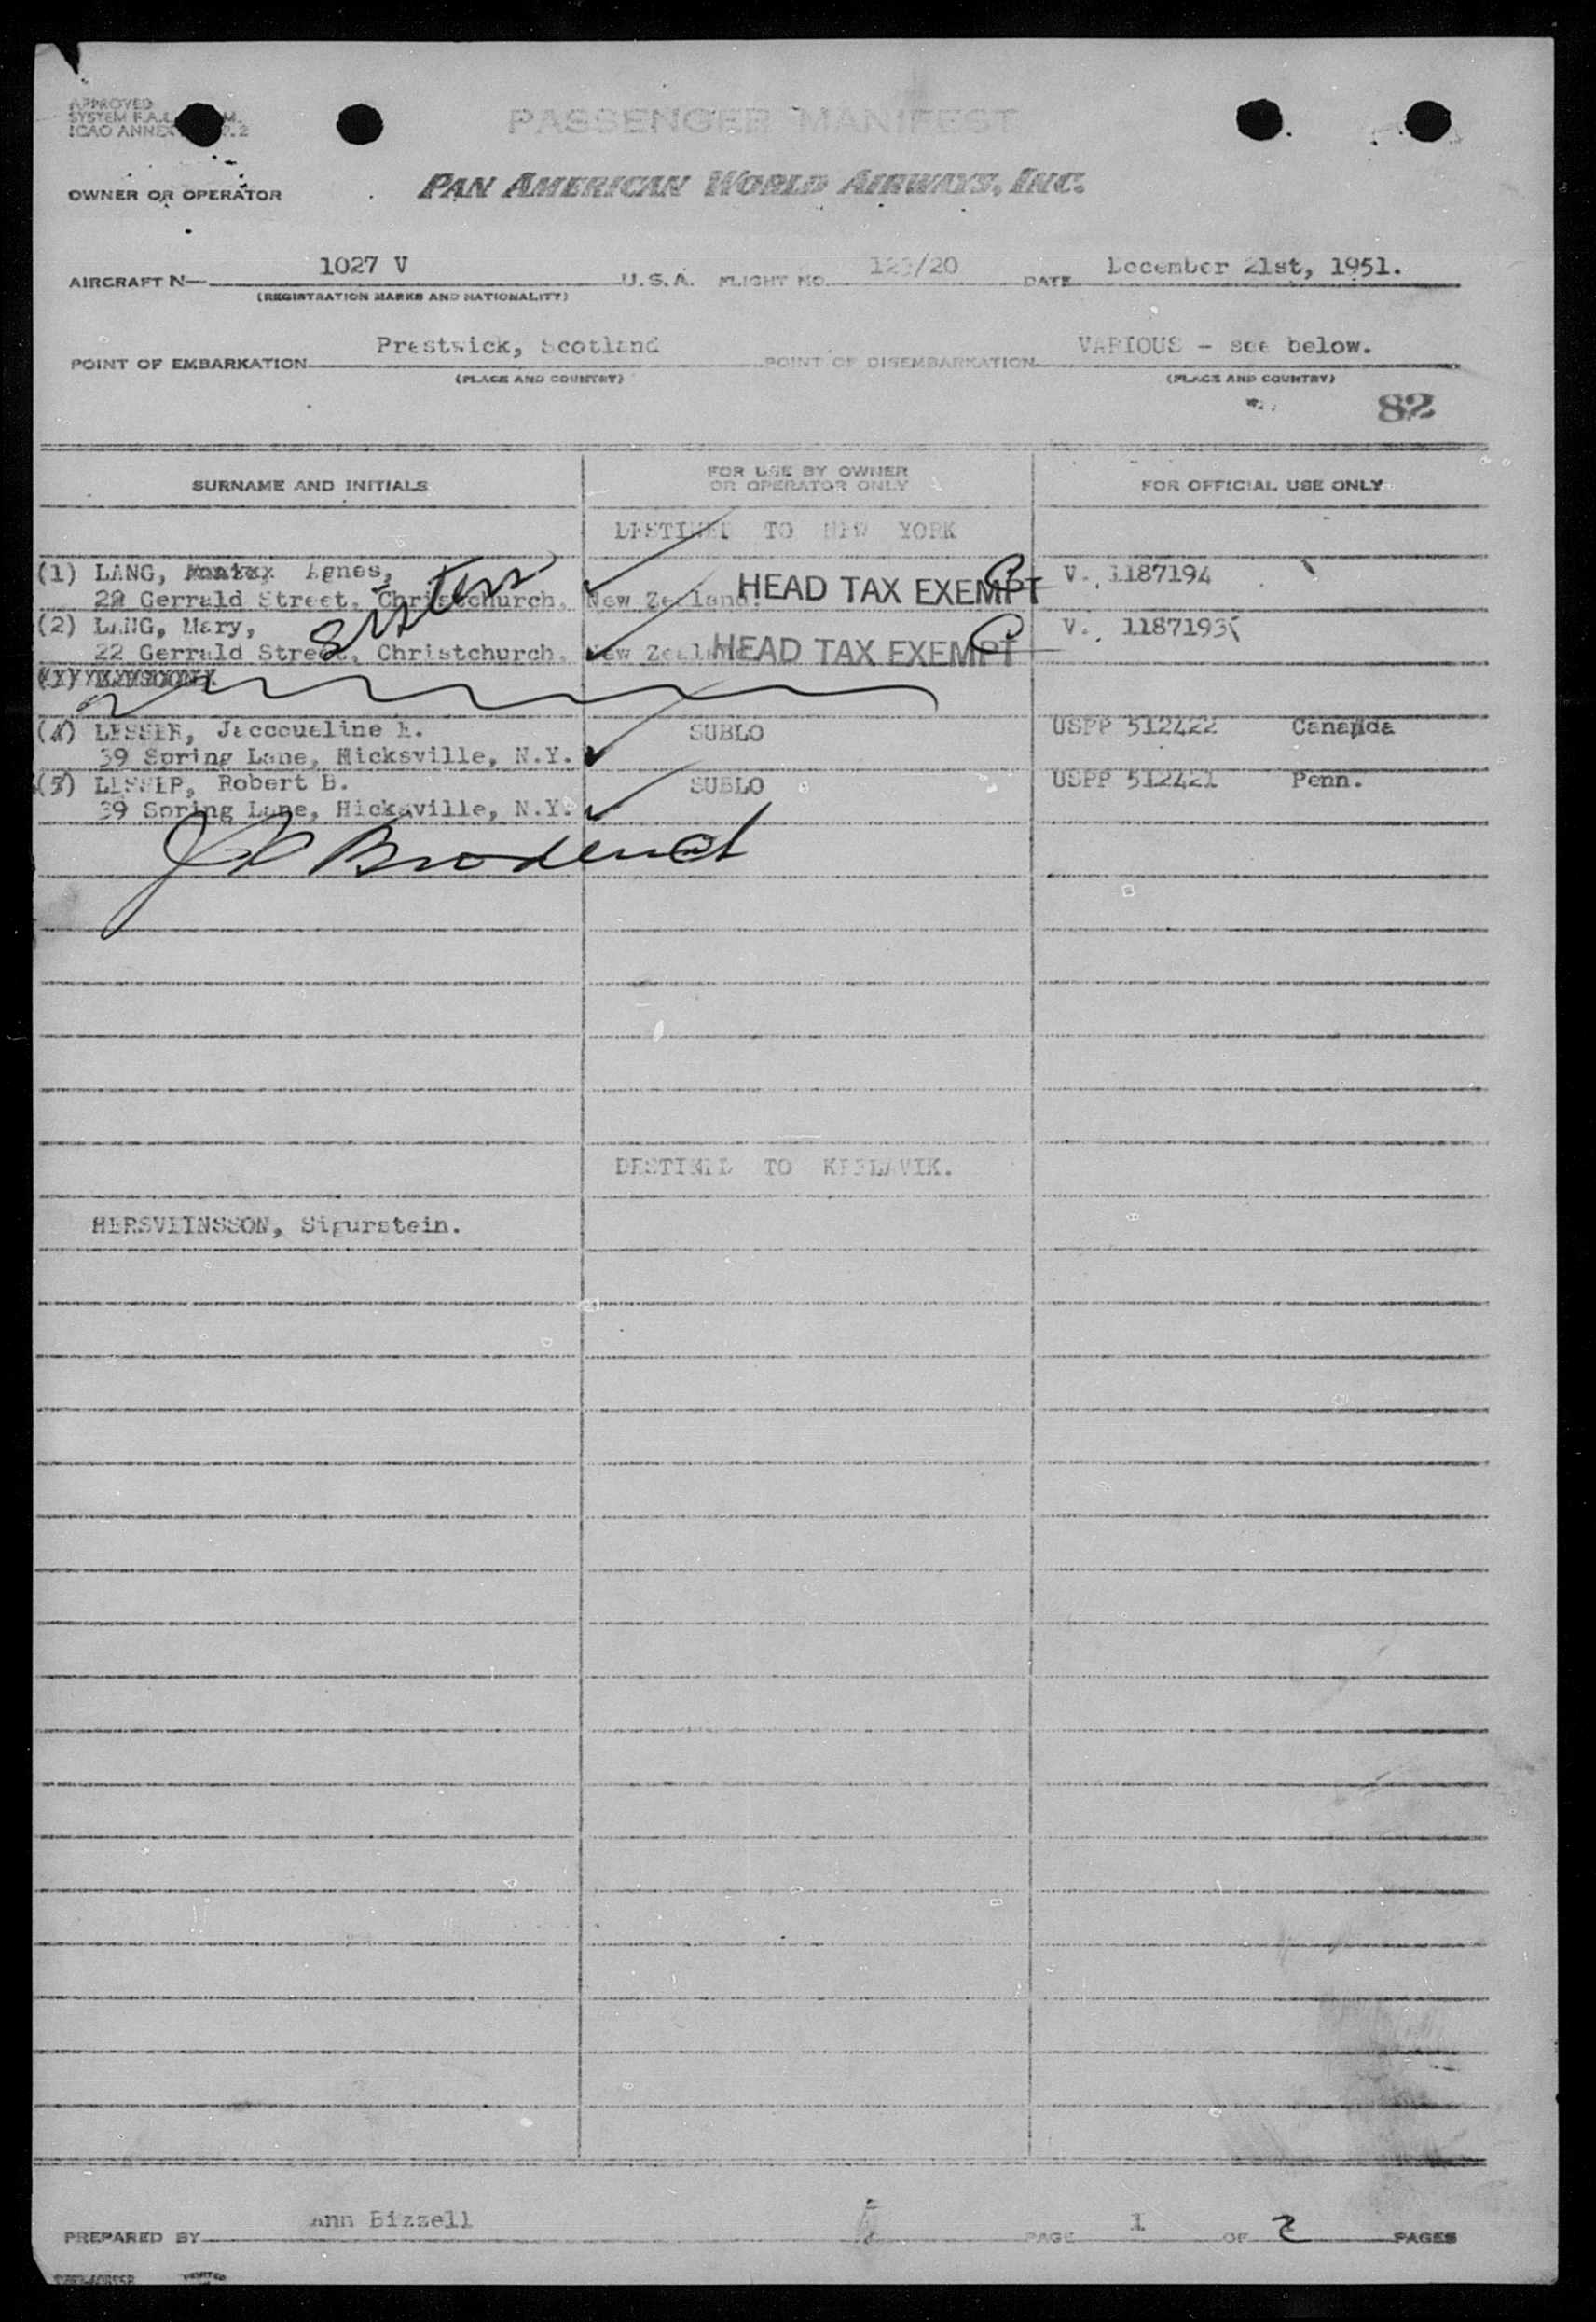 APPROVED
SYSTEM F.A.L. M.
ICAO ANNEX P.2
PASSENGER MANIFEST
OWNER OR OPERATOR PAN AMERICAN WORLD AIRWAYS, INC.
AIRCRAFT N— 1027 V U.S.A. FLIGHT NO. /20 DATE December 21st, 1951.
(REGISTRATION MARKS AND NATIONALITY)
POINT OF EMBARKATION Prestwick, Scotland POINT OF DISEMBARKATION VARIOUS - see below.
(PLACE AND COUNTRY) (PLACE AND COUNTRY)
82
SURNAME AND INITIALS FOR USE BY OWNER OR OPERATOR ONLY FOR OFFICIAL USE ONLY
DESTINED TO NEW YORK
(1) LANG, Agnes, HEAD TAX EXEMPT V. 1187194
22 Gerrald Street, Christchurch, New Zealand.
sisters
(2) LANG, Mary, V. 1187193
22 Gerrald Street, Christchurch, New Zealand HEAD TAX EXEMPT
(4) LESSER, Jaccoueline SUBLO USPP 512422 Cananda
39 Spring Lane, Hicksville, N.Y.
(5) LESSER, Robert B. SUBLO USPP 512421 Penn.
39 Spring Lane, Hicksville, N.Y.
DESTINED TO KEFLAVIK.
HERSVEINSSON, Sigurstein.
PREPARED BY Ann Bizzell PAGE 1 OF 2 PAGES